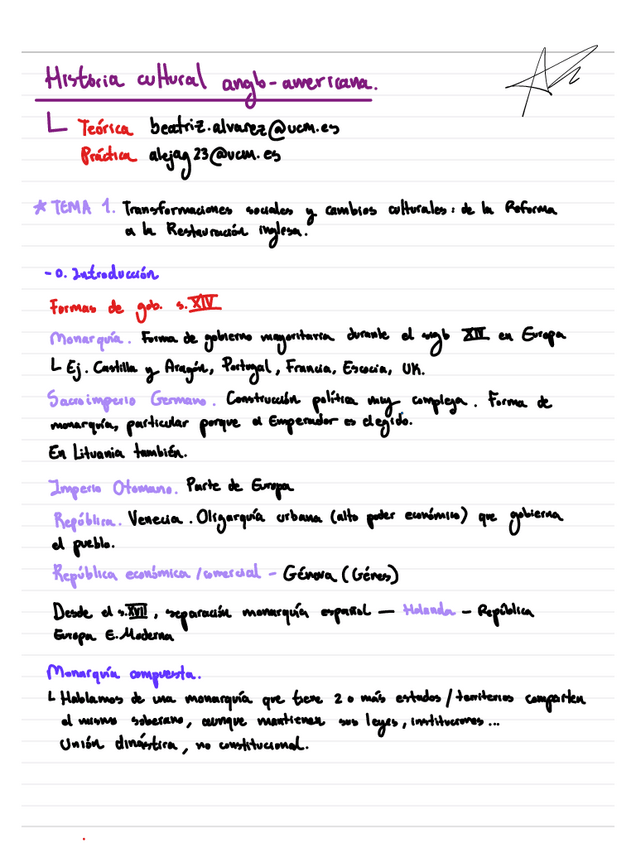 Historia cultural anglo-americana.
Teórica beatriz.alvarez@ucm.es
Práctica alejag23@ucm.es
* TEMA 1. Transformaciones sociales y cambios culturales: de la Reforma
a la Restauración inglesa.
- 0. Introducción
Formas de gob. s. XIV
Monarquía. Forma de gobierno mayoritaria durante el siglo XIV en Europa
Ej. Castilla y Aragón, Portugal, Francia, Escocia, UK.
Sacroimperio Germano. Construcción política muy compleja. Forma de
monarquía, particular porque el Emperador es elegido.
En Lituania también.
Imperio Otomano. Parte de Europa
República. Venecia. Oligarquía urbana (alto poder económico) que gobierna
el pueblo.
República económica/comercial - Génova (Génes)
Desde el s. XVII, separación monarquía español — Holanda - República
Europa E. Moderna
Monarquía compuesta.
Hablamos de una monarquía que tiene 2 o más estados/territorios comparten
el mismo soberano, aunque mantienen sus leyes, instituciones...
Unión dinástica, no constitucional.